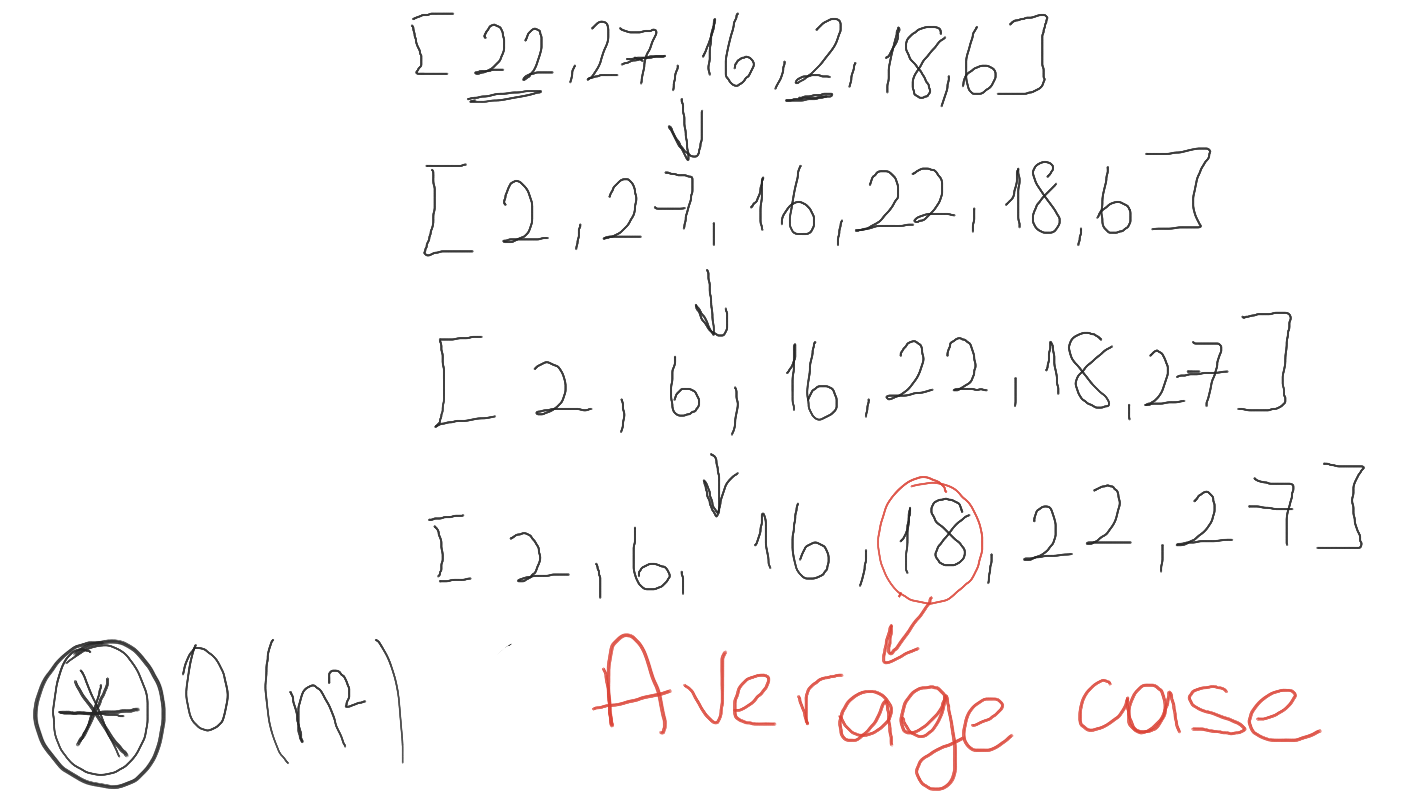 [22,27,16,2,18,6]
[2,27,16,22,18,6]
[2,6,16,22,18,27]
[2,6,16,18,22,27]
* O(n²)
Average case